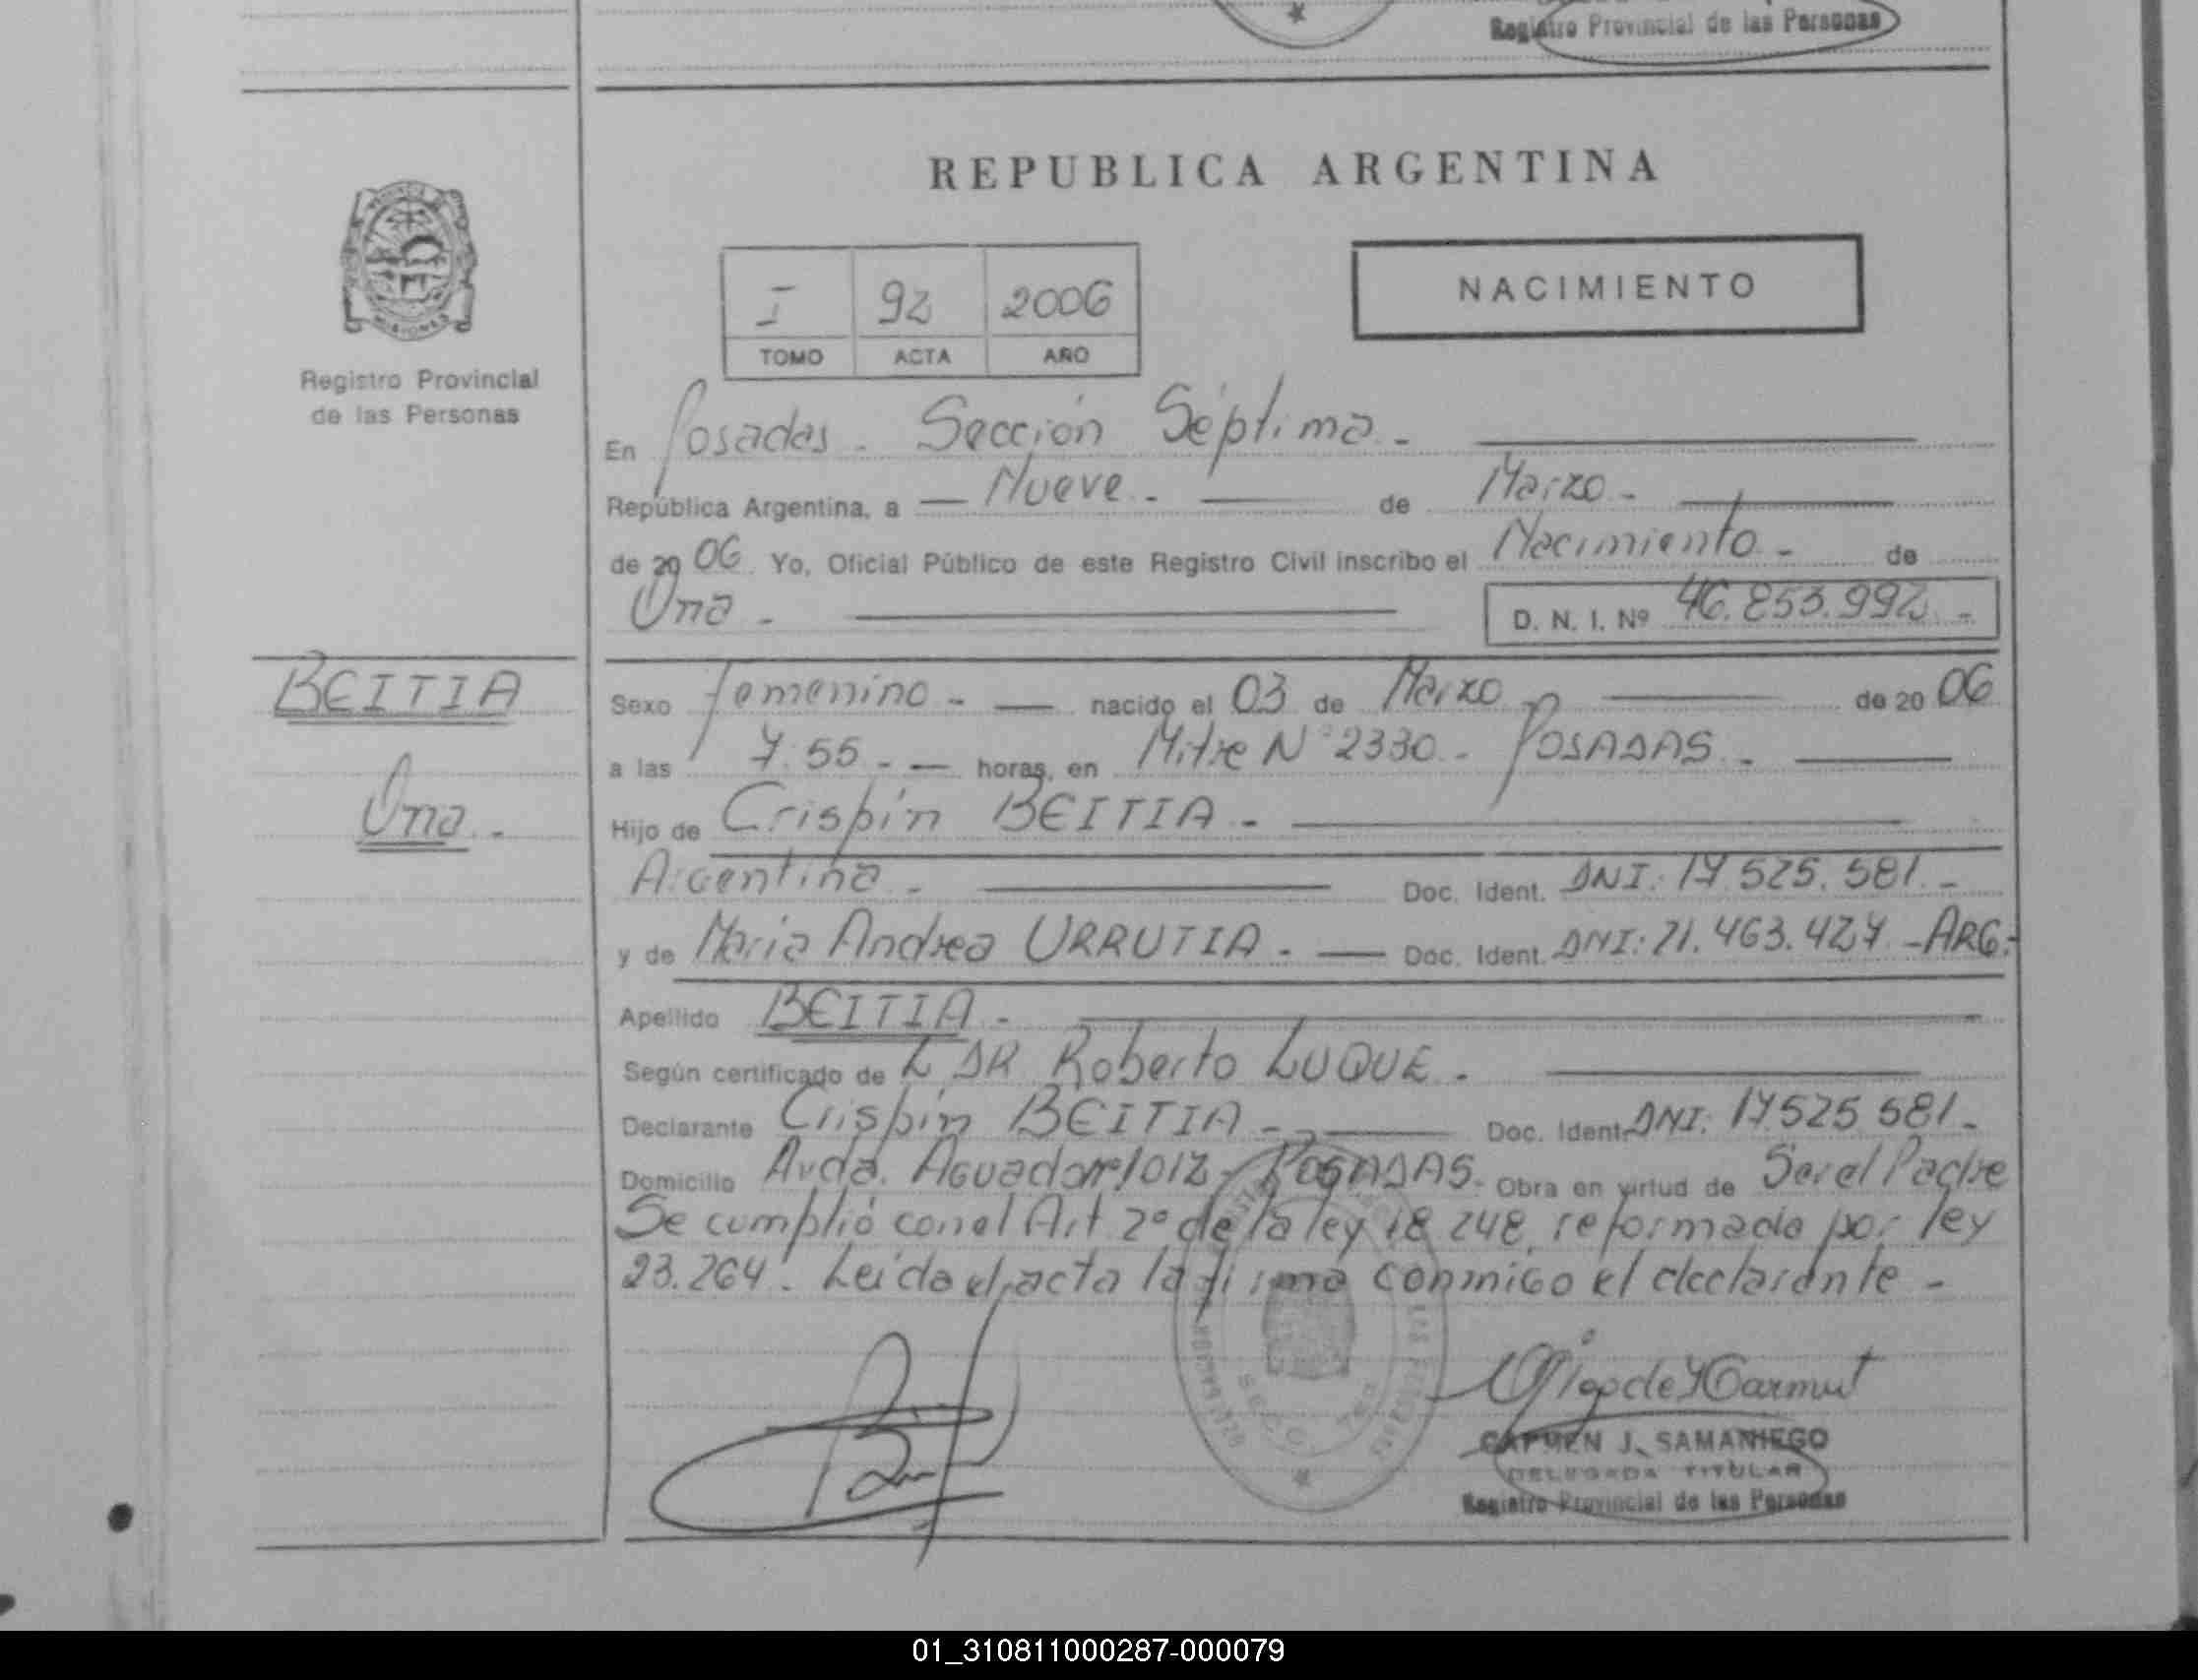 Registro Provincial de las Personas
REPUBLICA ARGENTINA
PROVINCIA
MISIONES
Registro Provincial
de las Personas
I 92 2006
TOMO ACTA AÑO
NACIMIENTO
En Posadas - Sección Séptima -
República Argentina, a Nueve - de Marzo -
de 2006 Yo, Oficial Público de este Registro Civil inscribo el Nacimiento - de
Una - D. N. I. Nº 46.853.992 -
BEITIA
Una -
Sexo Femenino - nacido el 03 de Marzo de 2006
a las 7:55 - horas, en Mitre N° 2330 - POSADAS -
Hijo de Crispín BEITIA -
Argentina - Doc. Ident. DNI: 17.525.581 -
y de Maria Andrea URRUTIA - Doc. Ident. DNI: 21.463.427 - ARG -
Apellido BEITIA -
Según certificado de L DR Roberto LUQUE -
Declarante Crispín BEITIA - Doc. Ident. DNI: 17.525 581 -
Domicilio Avda. Aguado Nº 1012 - POSADAS - Obra en virtud de Ser el Padre
Se cumplió con el Art 2º de la ley 18 248, reformada por ley
23.264. Leída el acta la firma conmigo el declarante -
CARMEN J. SAMANIEGO
DELEGADA TITULAR
Registro Provincial de las Personas
01_310811000287-000079